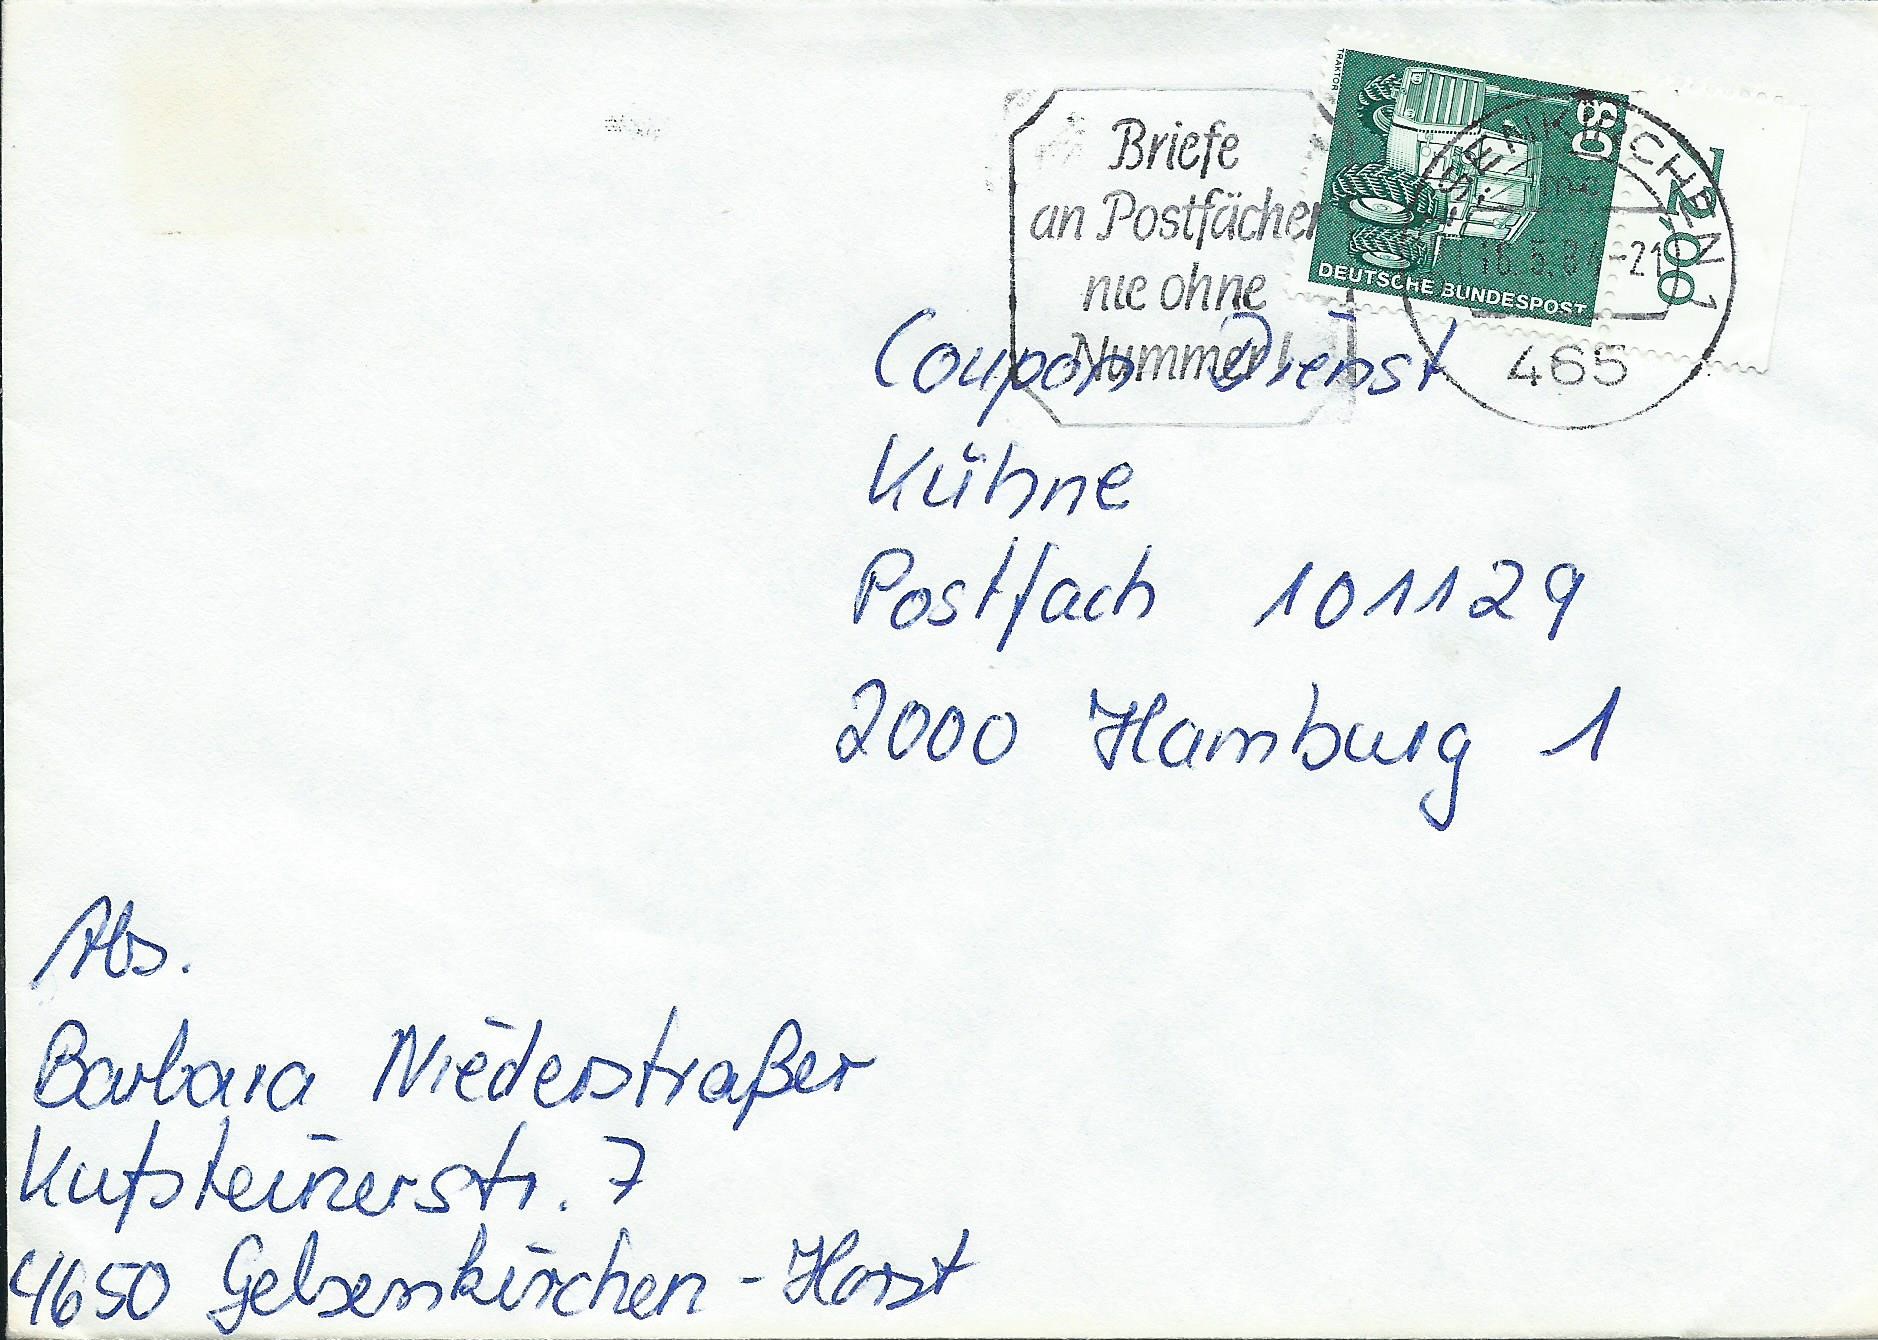 Briefe
an Postfächer
nie ohne
Nummer!
TRAKTOR
60
DEUTSCHE BUNDESPOST
GELSENKIRCHEN 1
465
Coupon Dienst
Kühne
Postfach 101129
2000 Hamburg 1
Abs.
Barbara Niederstraßer
Kufsteinerstr. 7
4650 Gelsenkirchen - Horst